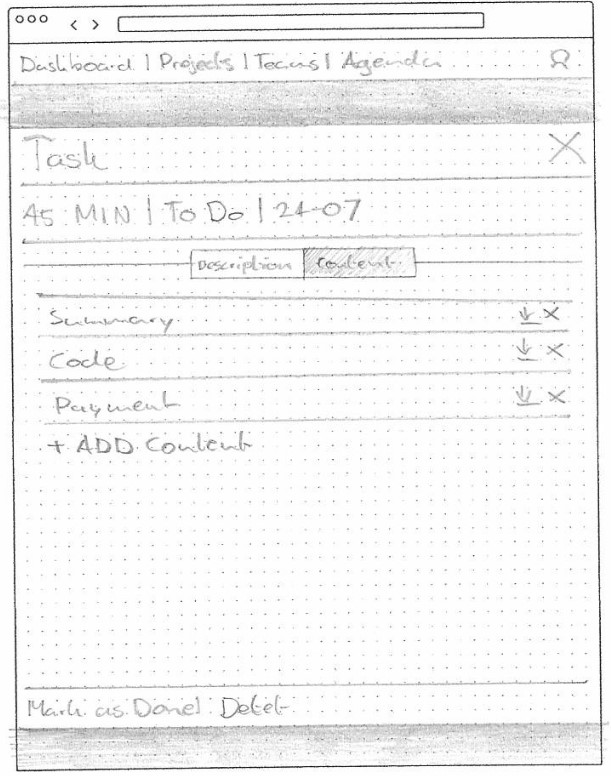 Dashboard | Projects | Teams | Agenda
Task
45 MIN | To Do | 24-07
Description Content
Summary
Code
Payment
+ ADD Content
Mark as Done | Delet